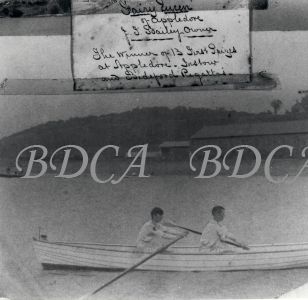 Fairy Queen
of Appledore
J. T. Bailey Owner
The Winner of 13 First Prizes
at Appledore. Instow
and Bideford Regattas
BDCA BDCA